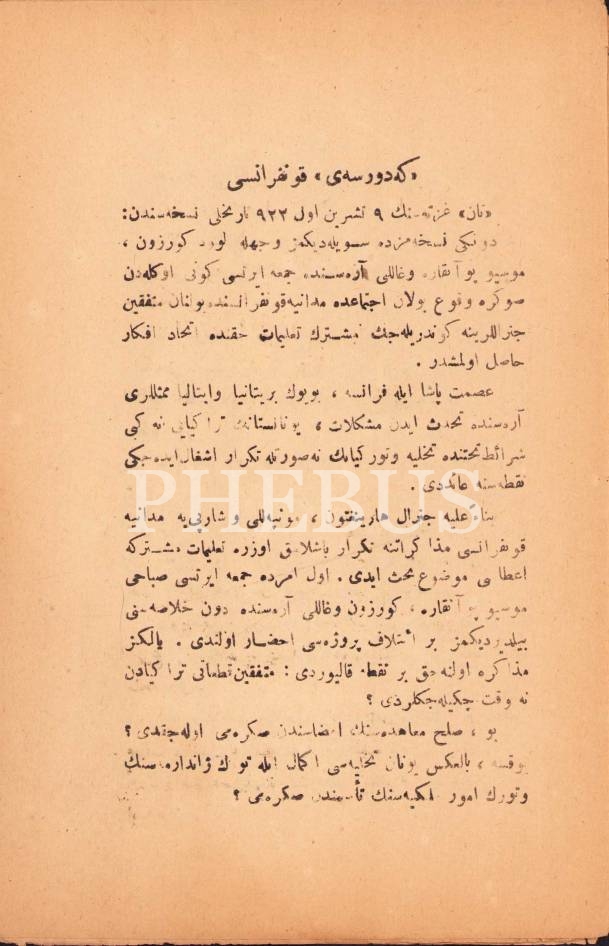 «كه‌دورسه‌ى» قونفرانسى
«تان» غزته‌سنك ٩ تشرين اول ٩٢٢ تاريخلى نسخه‌سندن:
دونكى نسخه‌مزده سويله‌ديكمز وجهله لورد كورزون ،
موسيو پوآنقاره وغاللى آره‌سنده جمعه ايرتسى كونى اوكله‌دن
صوكره وقوع بولان اجتماعده مدانيه قونفرانسنده بولنان متفقين
جنراللرينه كوندريله‌جك مشترك تعليمات حقنده اتحاد افكار
حاصل اولمشدر .
عصمت پاشا ايله فرانسه ، بويوك بريتانيا وايتاليا ممثللرى
آره‌سنده تحدث ايدن مشكلات ، يونانستانك تراكيايى نه كبى
شرائط تحتنده تخليه وتوركيانك نه‌صورتله تكرار اشغال ايده‌جكى
نقطه‌سنه عائددى .
PHEBUS
بناءً عليه جنرال هارينغتون ، مونبه‌للى وشارپى‌يه مدانيه
قونفرانسى مذاكراتنه تكرار باشلامق اوزره تعليمات مشتركه
اعطاسى موضوع بحث ايدى . اول امرده جمعه ايرتسى صباحى
موسيو پوآنقاره ، كورزون وغاللى آره‌سنده دون خلاصه‌سنى
بيلديرديكمز بر ائتلاف پروژه‌سى احضار اولندى . يالكز
مذاكره اولنه‌جق بر نقطه قاليوردى : متفقين قطعاتى تراكيادن
نه وقت چكيله‌جكلردى ؟
بو ، صلح معاهده‌سنك امضاسندن صكره‌مى اوله‌جقدى ؟
يوقسه ، بالعكس يونان تخليه‌سى اكمال ايله تورك ژاندارمه‌سنك
وتورك امور ملكيه‌سنك تأسسندن صكره‌مى ؟